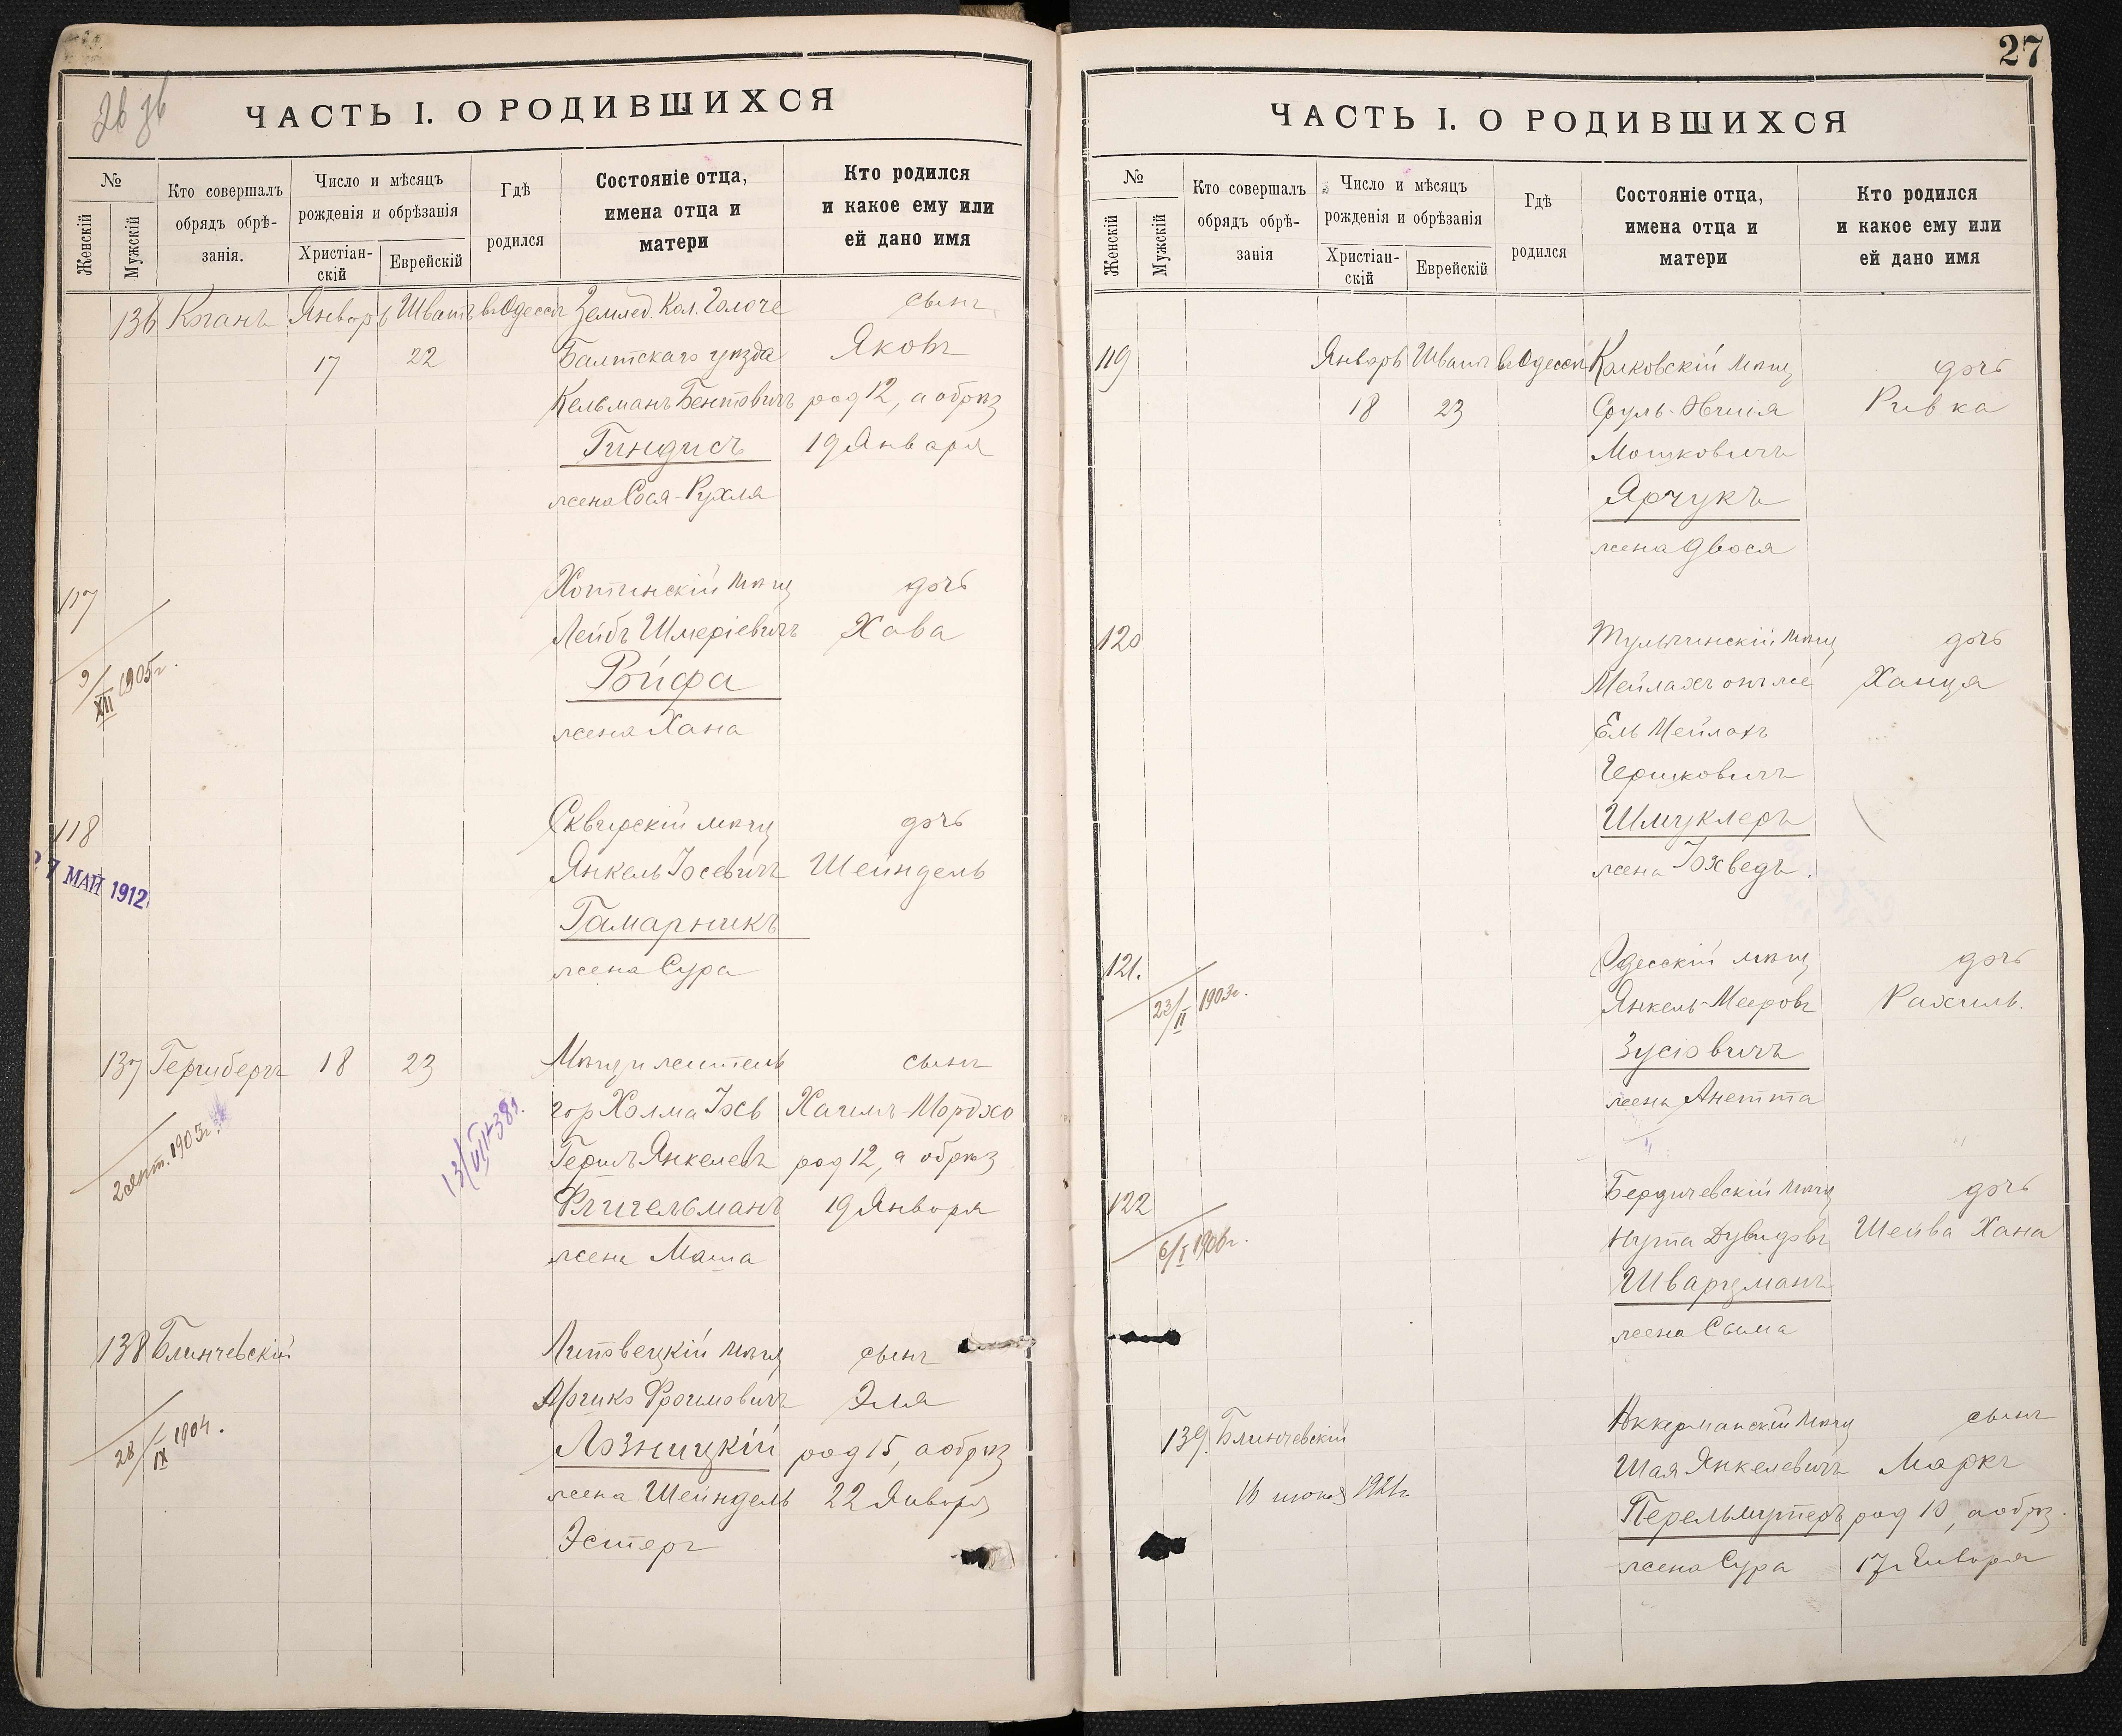 26 зв
ЧАСТЬ I. О РОДИВШИХСЯ
№
Женскій
Мужскій
Кто совершалъ
обрядъ обрѣ-
занія.
Число и мѣсяцъ
рожденія и обрѣзанія
Христіан-
скій
Еврейскій
Гдѣ
родился
Состояніе отца,
имена отца и
матери
Кто родился
и какое ему или
ей дано имя
136 Коганъ Январь Шватъ въ Одессѣ Землед. Кол. сынъ
17 22 Балтскаго уѣзда Яковъ
Кельманъ Бентовичъ род 12, а обрѣз
Гиндисъ 19 Января
жена Сося-Рухля
117 Хотинскій мѣщ дочь
Лейбъ Шмеріевичъ Хава
Ройфа
9/XII 1905г.
жена Хана
118 Сквирскій мѣщ дочь
27 МАЙ 1912
Янкель Іосевичъ Шейндель
Гамарникъ
жена Сура
137 Гершбергъ 18 23 сынъ
гор Холма Іось Хаимъ-Мордхо
Гершъ Янкелевъ род 12, а обрѣз
2 сент. 1903г.
13/VII-38г.
Фигельманъ 19 Января
жена Маша
138 Блинчевскій Липовецкій мѣщ сынъ
Фроимовичъ Эля
28/IX 1904.
Лозницкій род 15, а обрѣз
жена Шейндель 22 Января
Эстеръ
27
ЧАСТЬ I. О РОДИВШИХСЯ
№
Женскій
Мужскій
Кто совершалъ
обрядъ обрѣ-
занія
Число и мѣсяцъ
рожденія и обрѣзанія
Христіан-
скій
Еврейскій
Гдѣ
родился
Состояніе отца,
имена отца и
матери
Кто родился
и какое ему или
ей дано имя
119 Январь Шватъ въ Одессѣ мѣщ дочь
18 23 Сруль- Ривка
Мошковичъ
Ярчукъ
жена Двося
120 Тульчинскій мѣщ дочь
Мейлахъ онъ же Ханця
Ель Мейлахъ
Гершковичъ
Шмуклеръ
жена Іохведъ.
121. Одесскій мѣщ дочь
23/II 1903г.
Янкель-Мееровъ Рахиль.
Зусіовичъ
жена Анетта
122 Бердичевскій мѣщ дочь
6/I 1906г.
Нута Дувидовъ Шейва Хана
Шварцманъ
жена Сыма
139. Блинчевскій Аккерманскій мѣщ сынъ
Шая Янкелевичъ Маркъ
16 1921г.
Перельмутеръ род 10, а обрѣз.
жена Сура 17 Января